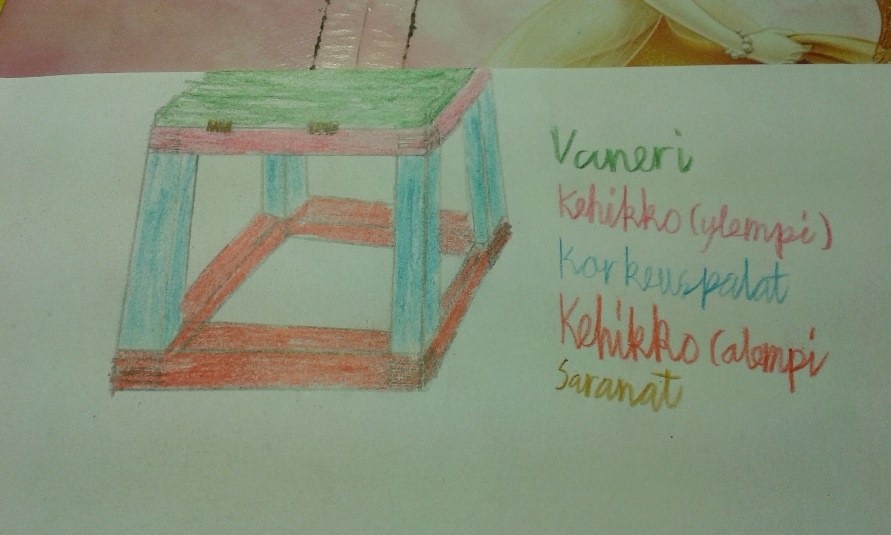 Vaneri
Kehikko (ylempi)
Korkeuspalat
Kehikko (alempi
Saranat